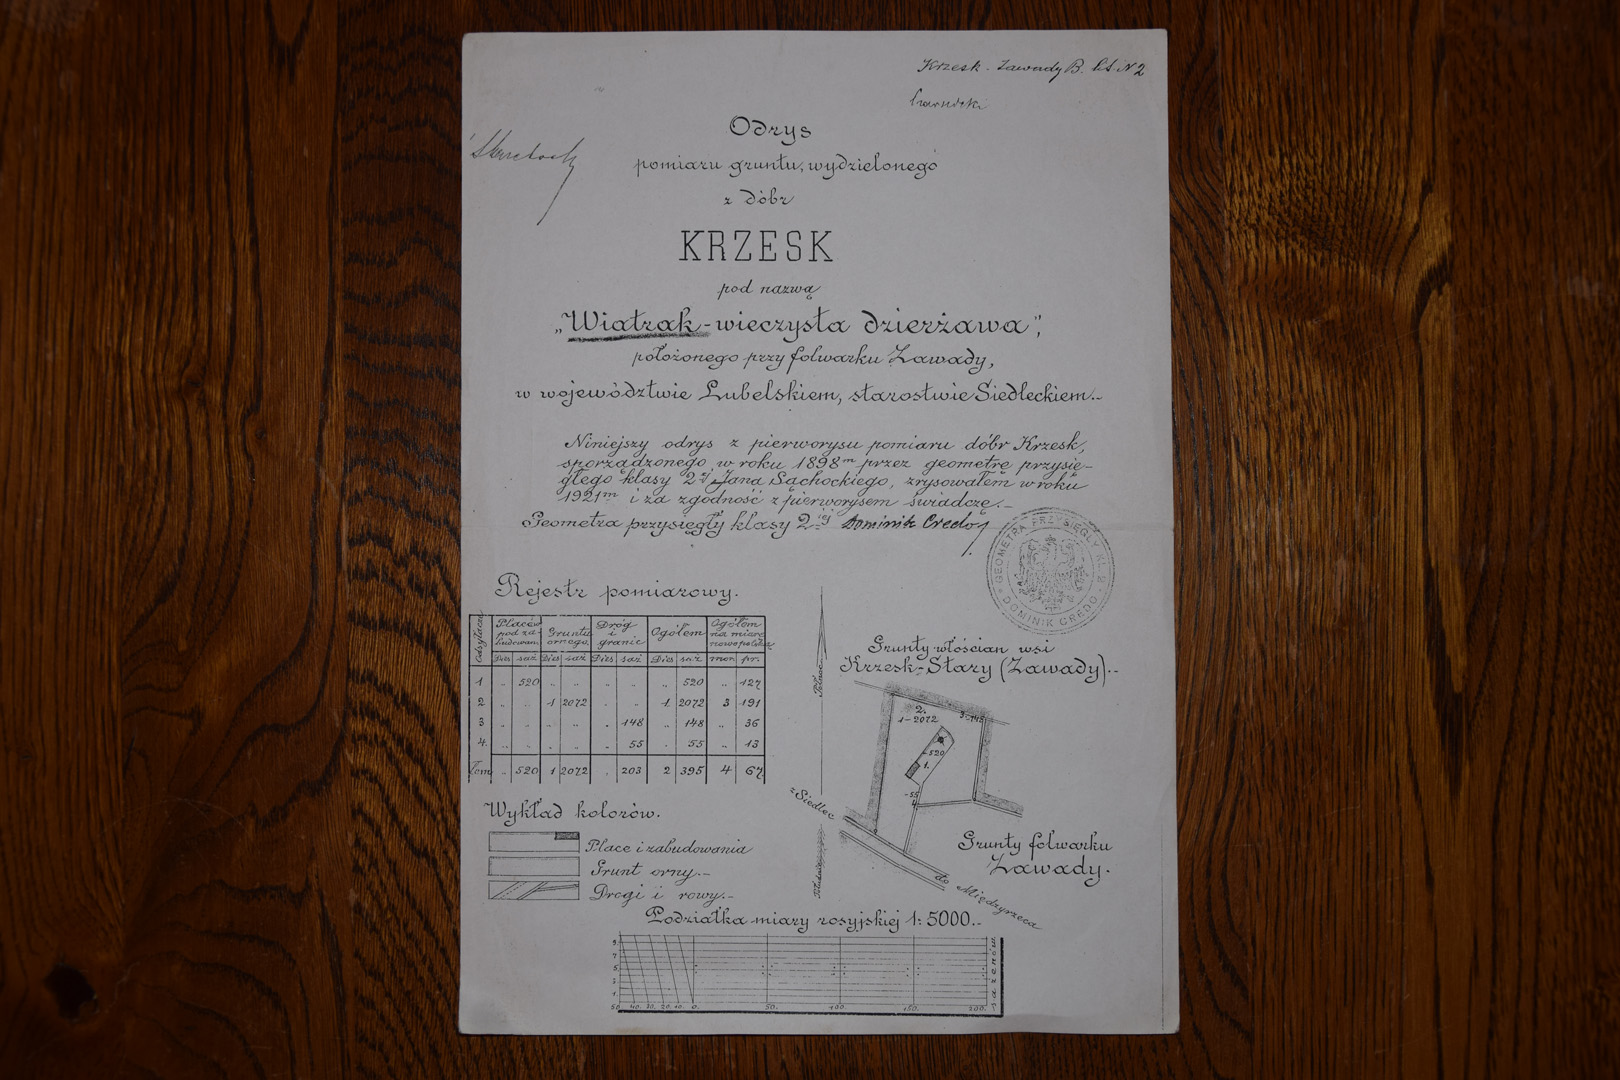 Krzesk-Zawady B. lit. N 2
Odrys
pomiaru gruntu, wydzielonego
z dóbr
KRZESK
pod nazwą
„Wiatrak-wieczysta dzierżawa”,
położonego przy folwarku Zawady,
w województwie Lubelskiem, starostwie Siedleckiem.-
Niniejszy odrys z pierworysu pomiaru dóbr Krzesk,
sporządzonego w roku 1898m przez geometrę przysię-
głego klasy 2ej Jana Sąchockiego, zrysowałem w roku
1921m i za zgodność z pierworysem świadczę.-
Geometra przysięgły klasy 2iej Dominik Credo
GEOMETRA PRZYSIĘGŁY KL. 2
DOMINIK CREDO
Rejestr pomiarowy.
Odsyłacz | Placów pod zabudowan. | Gruntu ornego | Dróg i granic | Ogółem | Ogółem na miarę nowopolską
Dies. saż. Dies. saż. Dies. saż. Dies. saż. mor. pr.
1 „ 520 „ „ „ „ „ 520 „ 127
2 „ „ 1 2072 „ „ 1 2072 3 191
3 „ „ „ „ „ 148 „ 148 „ 36
4. „ „ „ „ „ 55 „ 55 „ 13
„ 520 1 2072 „ 203 2 395 4 67
Północ
Południe
Grunty włościan wsi
Krzesk-Stary (Zawady).-
2.
1-2072
3-148
-520
1.
-55
4
z Siedlec
do Międzyrzeca
Grunty folwarku
Zawady.
Wykład kolorów.
Place i zabudowania
Grunt orny.-
Drogi i rowy.-
Podziałka miary rosyjskiej 1:5000.-
9.
7.
5.
3.
1.
50. 40. 30. 20. 10. 0. 50. 100. 150. 200.
sążenów.